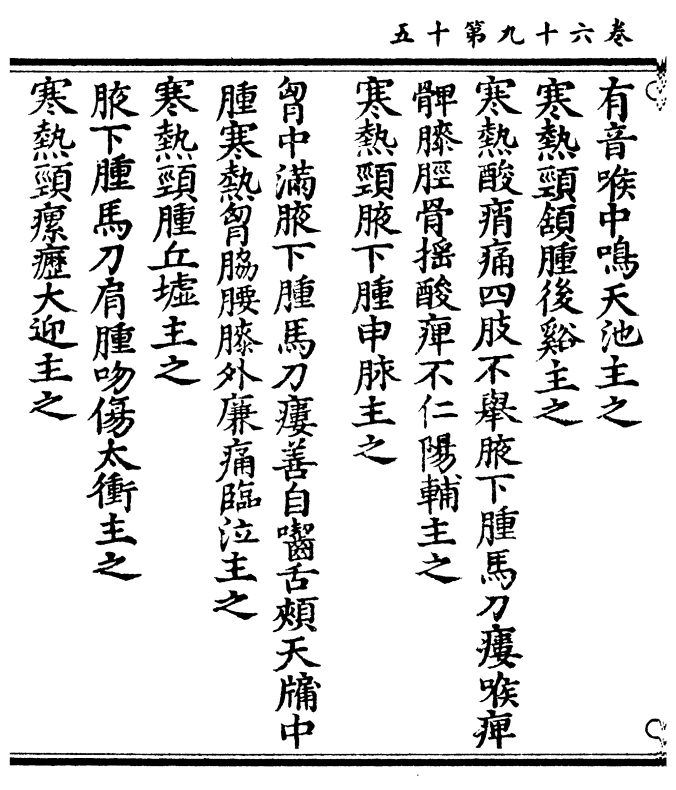 卷六十九第十五
有音喉中鳴天池主之
寒熱頸頷腫後谿主之
寒熱酸痟痛四肢不舉腋下腫馬刀瘻喉痺
髀膝脛骨摇酸痺不仁陽輔主之
寒熱頸腋下腫申脉主之
胷中滿腋下腫馬刀瘻善自嚙舌頰天牖中
腫寒熱胷脇腰膝外廉痛臨泣主之
寒熱頸腫丘墟主之
腋下腫馬刀肩腫吻傷太衝主之
寒熱頸瘰癧大迎主之